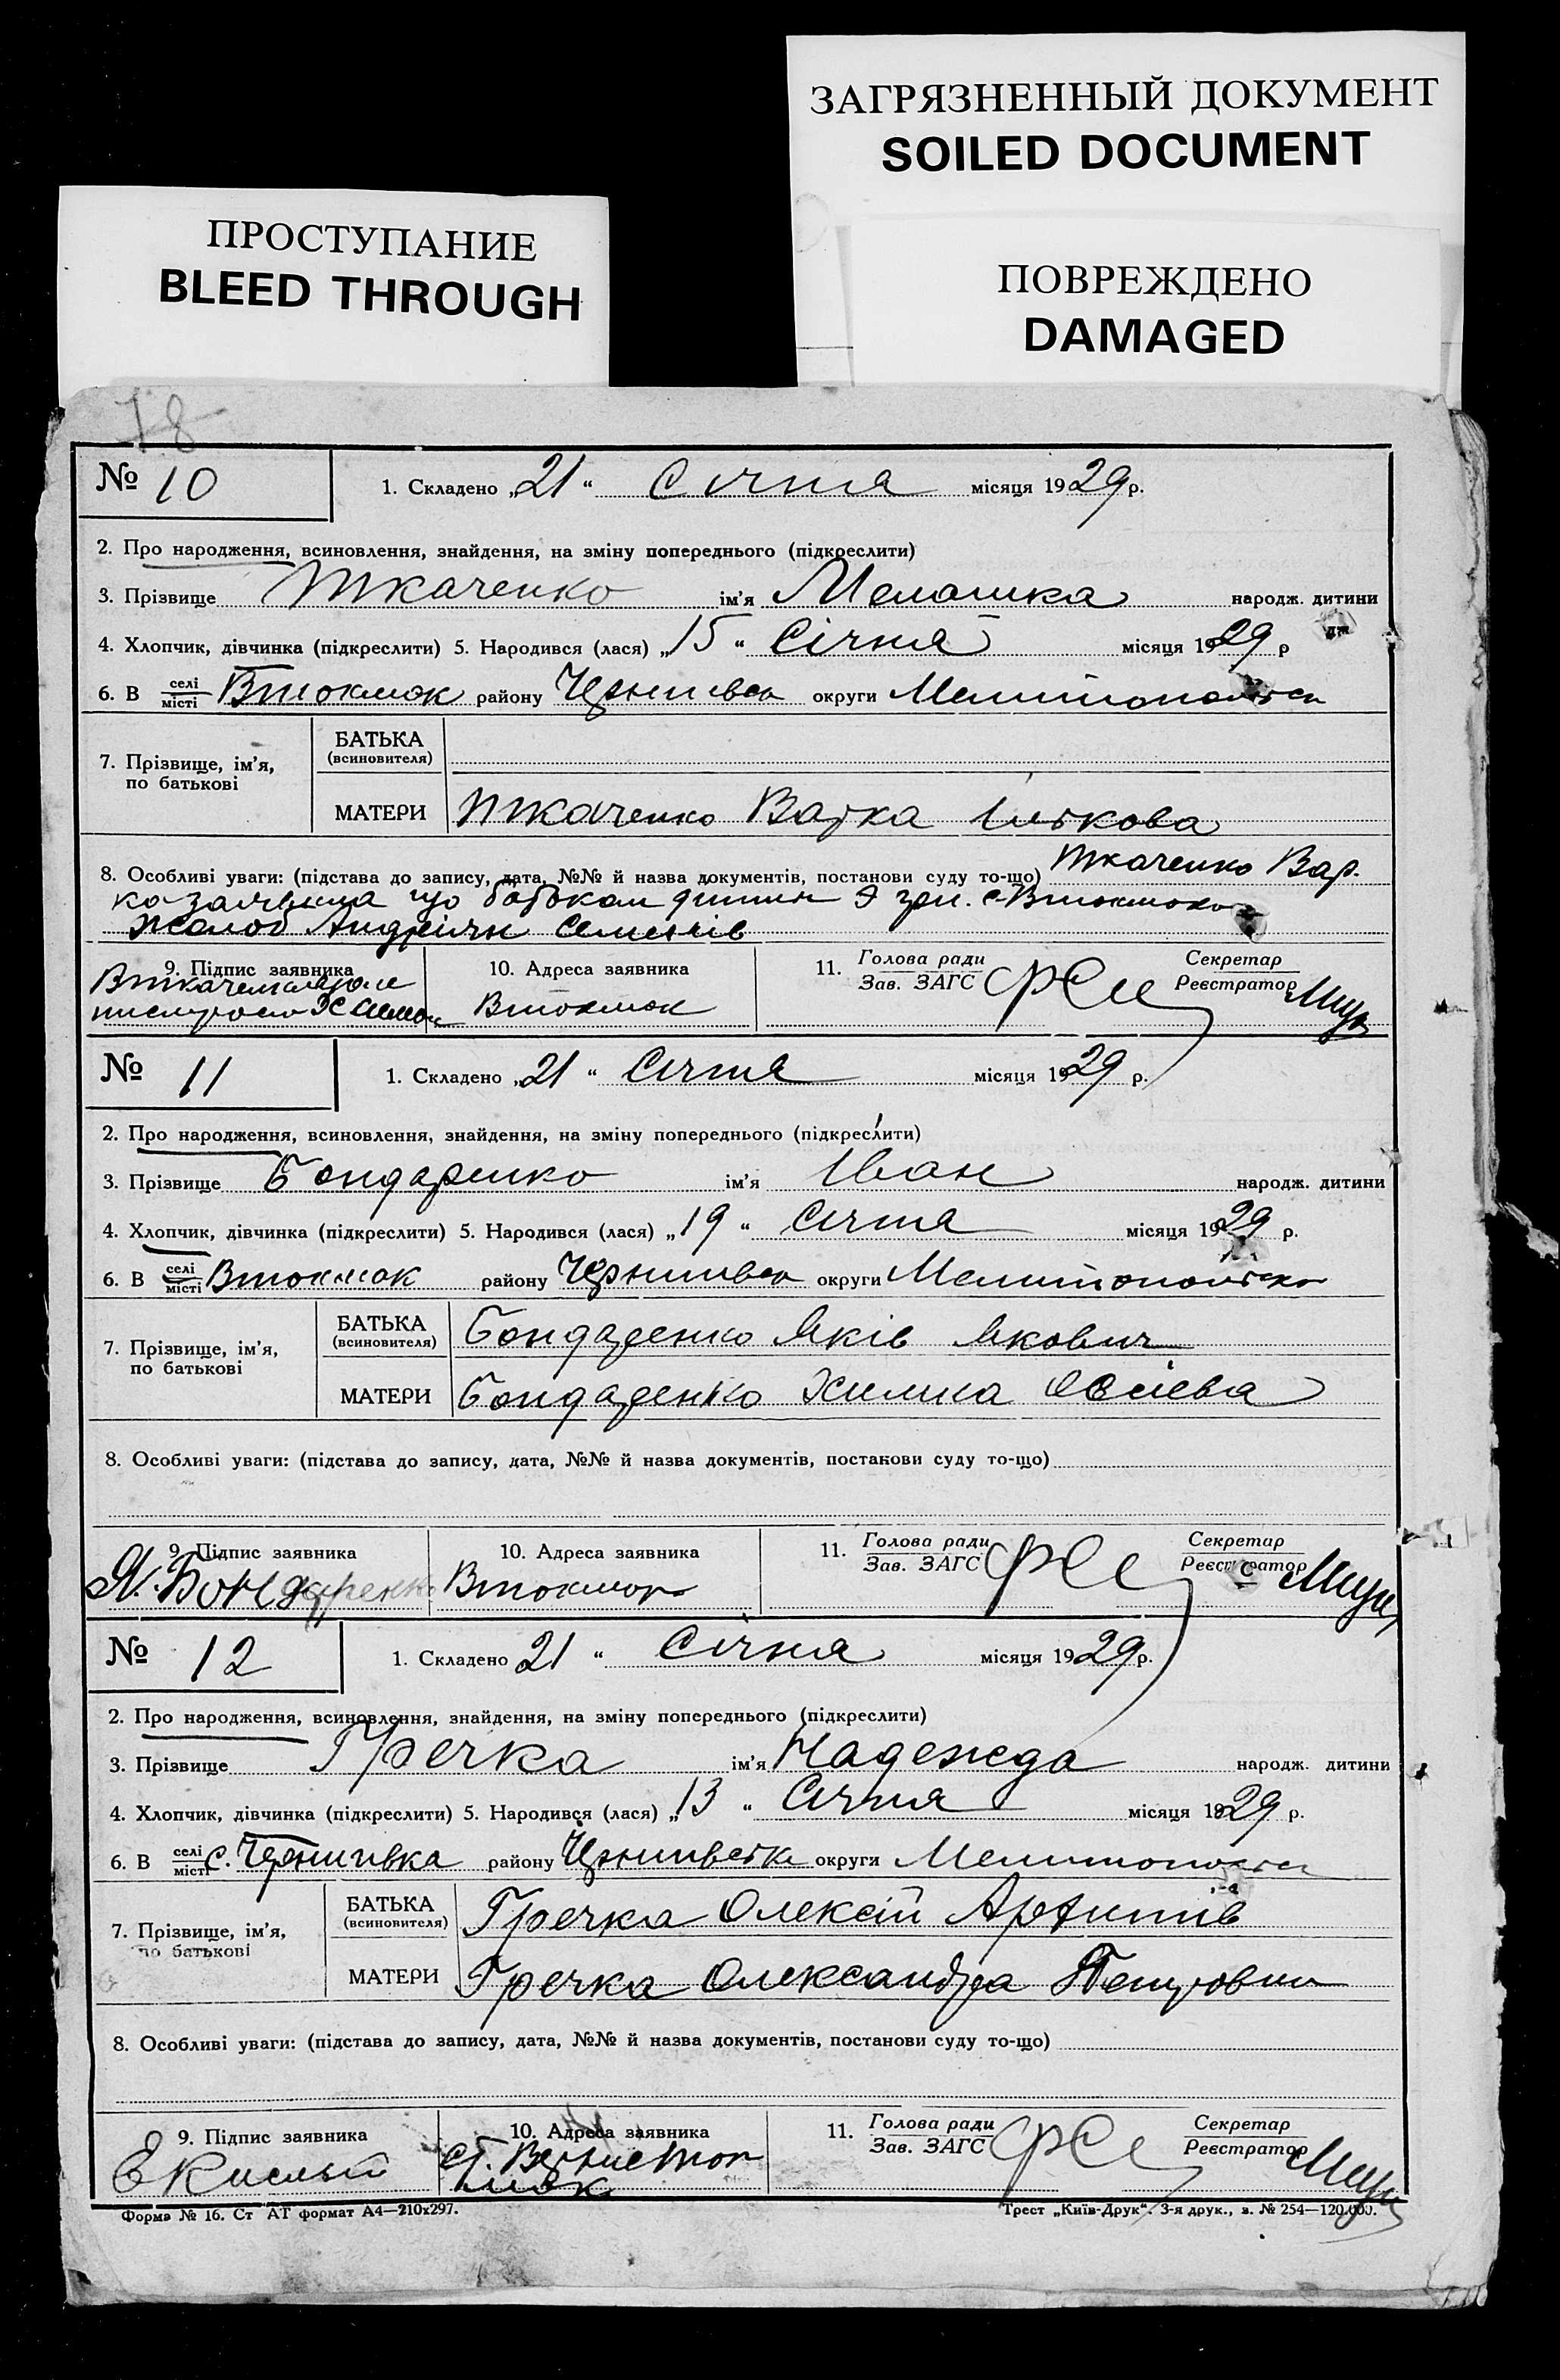 ЗАГРЯЗНЕННЫЙ ДОКУМЕНТ
SOILED DOCUMENT
ПРОСТУПАНИЕ
BLEED THROUGH
ПОВРЕЖДЕНО
DAMAGED
78
№ 10 1. Складено „21“ Січня місяця 1929 р.
2. Про народження, всиновлення, знайдення, на зміну попереднього (підкреслити)
3. Прізвище Ткаченко ім'я Мелашка народж. дитини
4. Хлопчик, дівчинка (підкреслити) 5. Народився (лася) „15“ Січня місяця 1929 р
6. В селі місті Втокмак району Чернигівськ округи Мелитопольськ
7. Прізвище, ім'я, по батькові БАТЬКА (всиновителя)
МАТЕРИ Ткаченко Варка
8. Особливі уваги: (підстава до запису, дата, №№ й назва документів, постанови суду то-що) Ткаченко Вар
ка що батьком дитини є гр. с. Втокмака
Андріян Семенів
9. Підпис заявника 10. Адреса заявника Втокмак 11. Голова ради Зав. ЗАГС Секретар Реєстратор
№ 11 1. Складено „21“ Січня місяця 1929 р.
2. Про народження, всиновлення, знайдення, на зміну попереднього (підкреслити)
3. Прізвище Бондаренко ім'я Іван народж. дитини
4. Хлопчик, дівчинка (підкреслити) 5. Народився (лася) „19“ Січня місяця 1929 р.
6. В селі місті Втокмак району Чернигівськ округи Мелитопольська
7. Прізвище, ім'я, по батькові БАТЬКА (всиновителя) Бондаренко Яків Якович
МАТЕРИ Бондаренко Овсієва
8. Особливі уваги: (підстава до запису, дата, №№ й назва документів, постанови суду то-що)
9. Підпис заявника Я. Бондаренко 10. Адреса заявника Втокмак 11. Голова ради Зав. ЗАГС Секретар Реєстратор
№ 12 1. Складено 21“ Січня місяця 1929 р.
2. Про народження, всиновлення, знайдення, на зміну попереднього (підкреслити)
3. Прізвище Гречка ім'я Надежда народж. дитини
4. Хлопчик, дівчинка (підкреслити) 5. Народився (лася) „13“ Січня місяця 1929 р.
6. В селі місті с. Чернигівка району Чернигівська округи Мелитопольськ
7. Прізвище, ім'я, по батькові БАТЬКА (всиновителя) Гречка Олексій
МАТЕРИ Гречка Олександра Петровна
8. Особливі уваги: (підстава до запису, дата, №№ й назва документів, постанови суду то-що)
9. Підпис заявника 10. Адреса заявника 11. Голова ради Зав. ЗАГС Секретар Реєстратор
Форма № 16. Ст АТ формат А4—210х297. Трест „Київ-Друк“. 3-я друк., з. № 254—120.000.